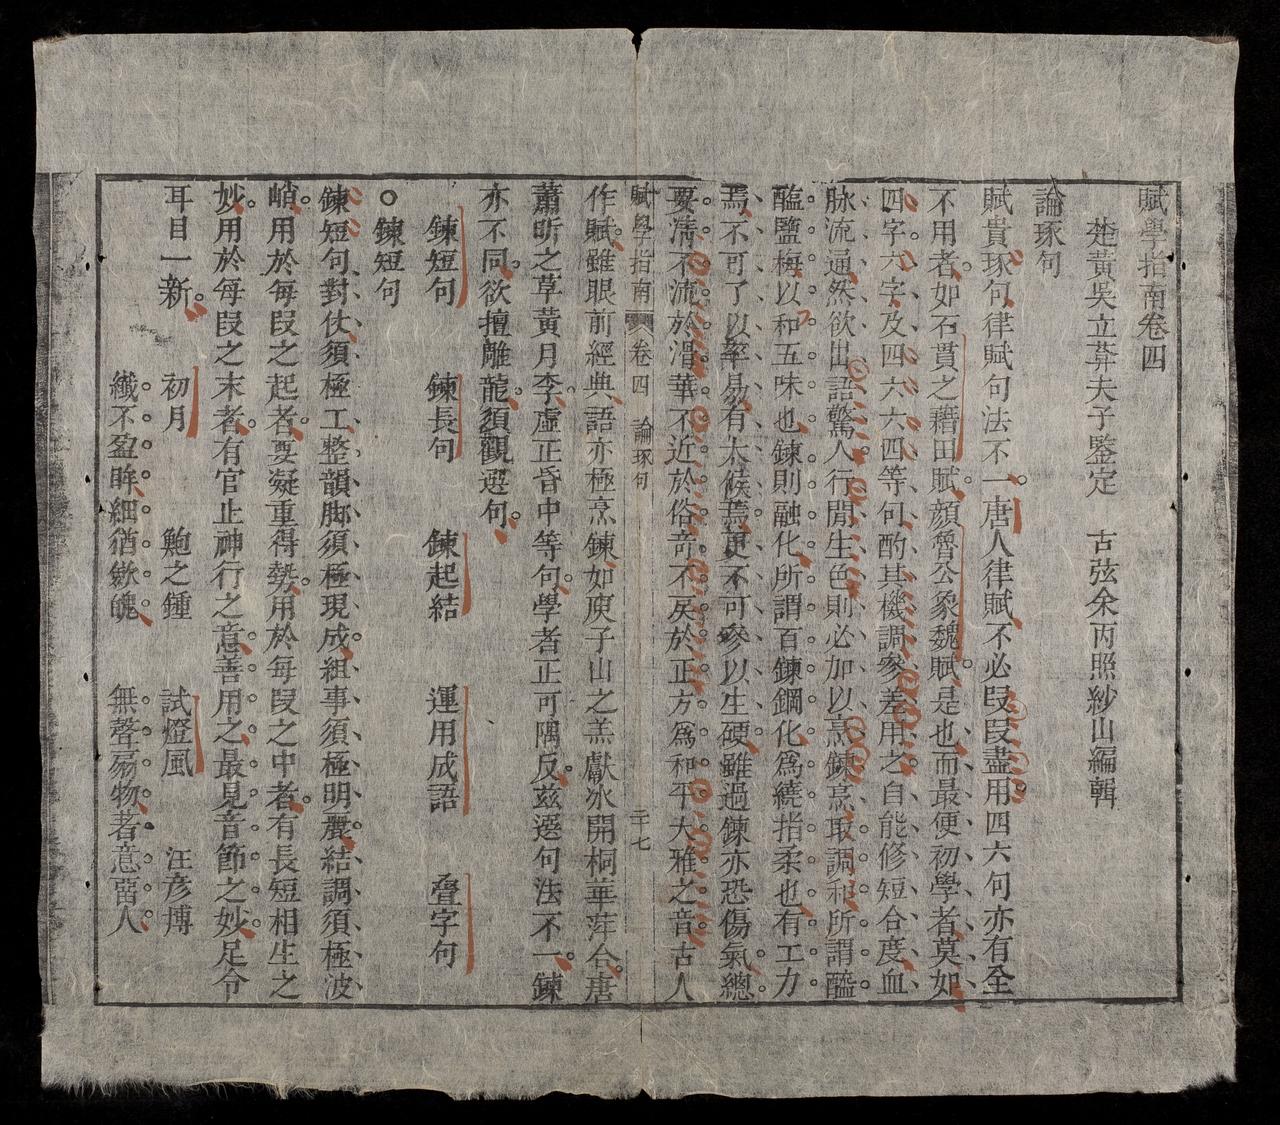 賦學指南卷四
楚黃吳立莾夫子鑒定 古弦余丙照紗山編輯
論琢句
賦貴琢句律賦句法不一唐人律賦不必段段盡用四六句亦有全
不用者如石貫之藉田賦顏魯公象魏賦是也而最便初學者莫如
四字六字及四六六四等句酌其機調參差用之自能修短合度血
脉流通然欲出語驚人行間生色則必加以烹鍊烹取調和所謂醯
醢鹽梅以和五味也鍊則融化所謂百鍊鋼化為繞指柔也有工力
焉不可了以率易有火候焉更不可參以生硬雖過鍊亦恐傷氣總
要清不流於滑華不近於俗奇不戾於正方為和平大雅之音古人
賦學指南 卷四 論琢句 三十七
作賦雖眼前經典語亦極烹鍊如庾子山之羔獻冰開桐華萍合唐
蕭昕之草黃月季虛正昏中等句學者正可隅反茲選句法不一鍊
亦不同欲擅雕龍須觀選句
鍊短句 鍊長句 鍊起結 運用成語 疊字句
○鍊短句
鍊短句對仗須極工整韻脚須極現成組事須極明麗結調須極波
峭用於每段之起者要凝重得勢用於每段之中者有長短相生之
妙用於每段之末者有官止神行之意善用之最見音節之妙足令
耳目一新 初月 鮑之鍾 試燈風 汪彥摶
纖不盈眸細猶歛魄 無聲扇物著意畱人